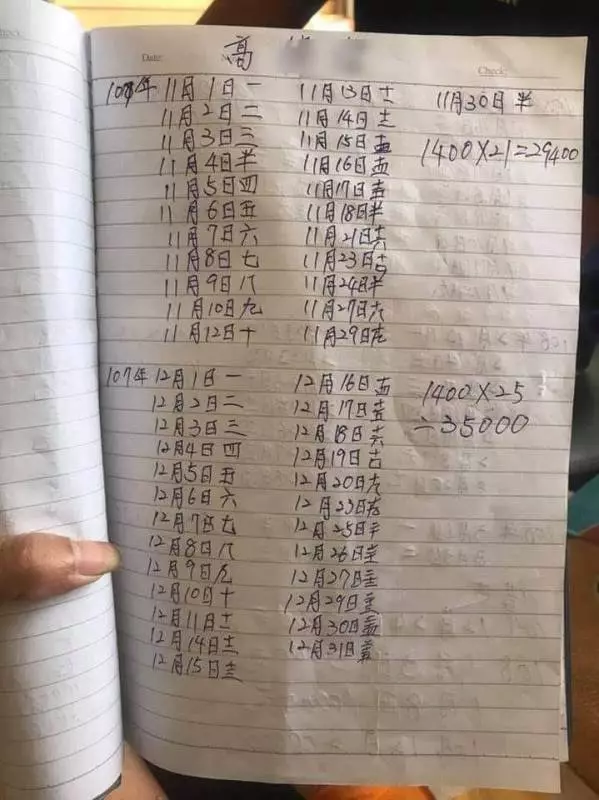 高
107年 11月1日一
11月2日二
11月3日三
11月4日半
11月5日四
11月6日五
11月7日六
11月8日七
11月9日八
11月10日九
11月12日十
11月13日十一
11月14日十二
11月15日十三
11月16日十四
11月17日十五
11月18日半
11月21日十六
11月23日十七
11月24日半
11月27日十八
11月29日十九
11月30日半
1400×21=29400
107年 12月1日一
12月2日二
12月3日三
12月4日四
12月5日五
12月6日六
12月7日七
12月8日八
12月9日九
12月10日十
12月11日十一
12月14日十二
12月15日十三
12月16日十四
12月17日十五
12月18日十六
12月19日十七
12月20日十八
12月23日十九
12月25日半
12月26日
12月27日
12月29日
12月30日
12月31日
1400×25
=35000